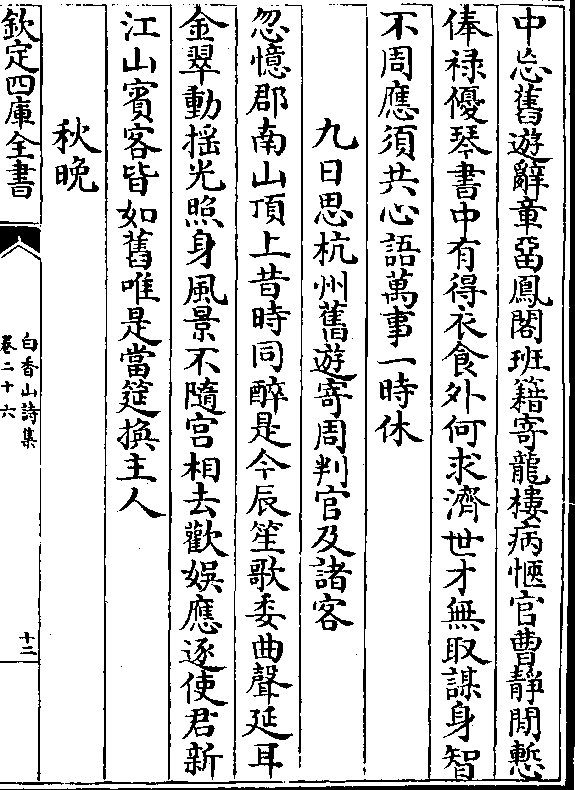 中忘舊遊辭章留鳳閣班籍寄龍樓病愜官曹靜閒慙
俸祿優琴書中有得衣食外何求濟世才無取謀身智
不周應須共心語萬事一時休
九日思杭州舊遊寄周判官及諸客
忽憶郡南山頂上昔時同醉是今辰笙歌委曲聲延耳
金翠動搖光照身風景不隨宮相去歡娛應逐使君新
江山賓客皆如舊唯是當筵換主人
秋晚
欽定四庫全書
白香山詩集
卷二十六
十三